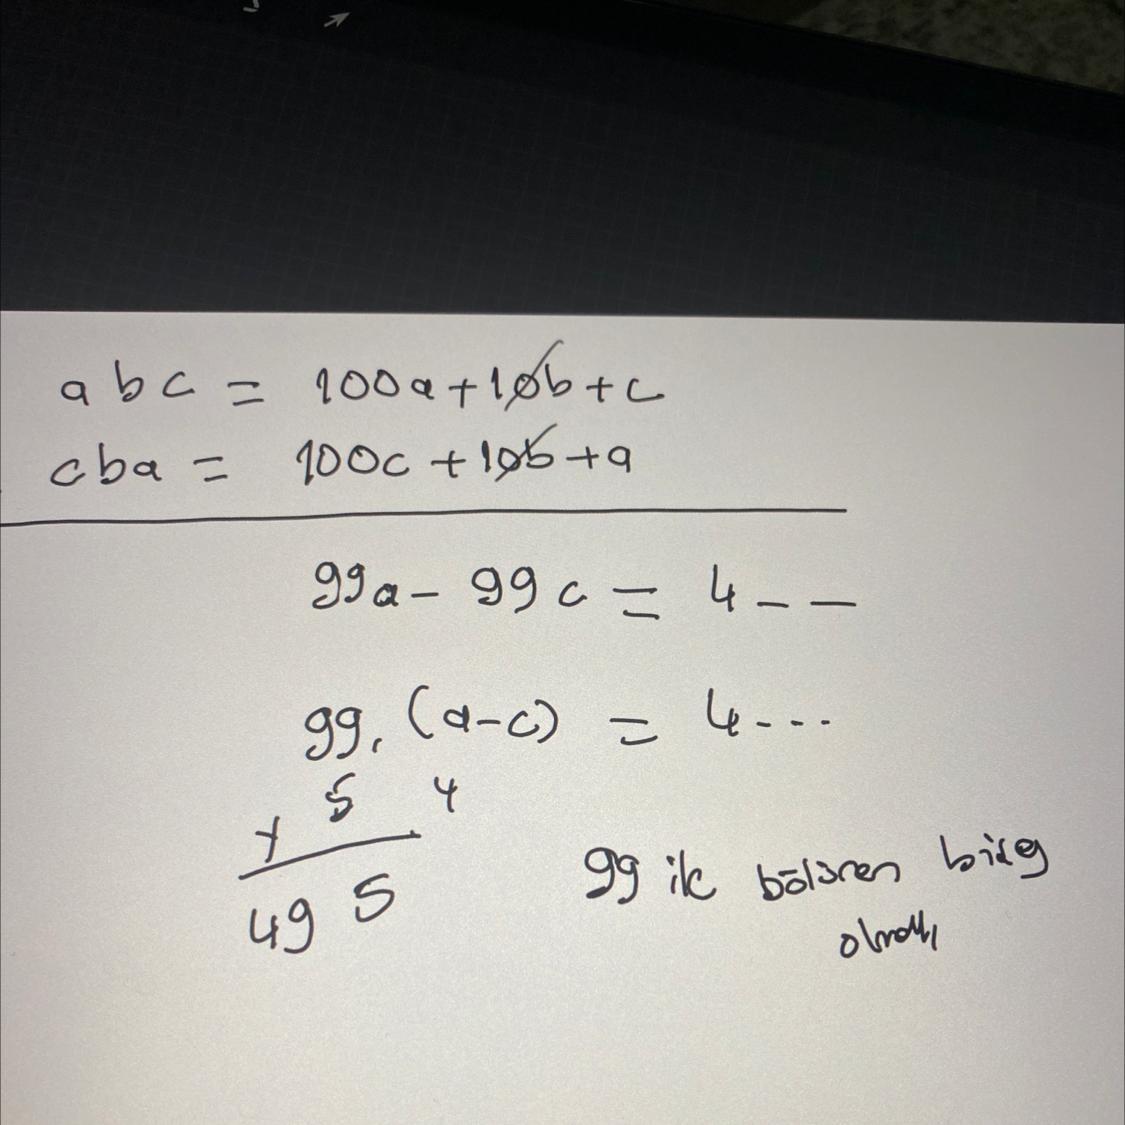 abc = 100a+10b+c
cba = 100c+10b+a
99a- 99c = 4_ _
99. (a-c) = 4---
5 4
x
495
99 ile bölünen
olmalı